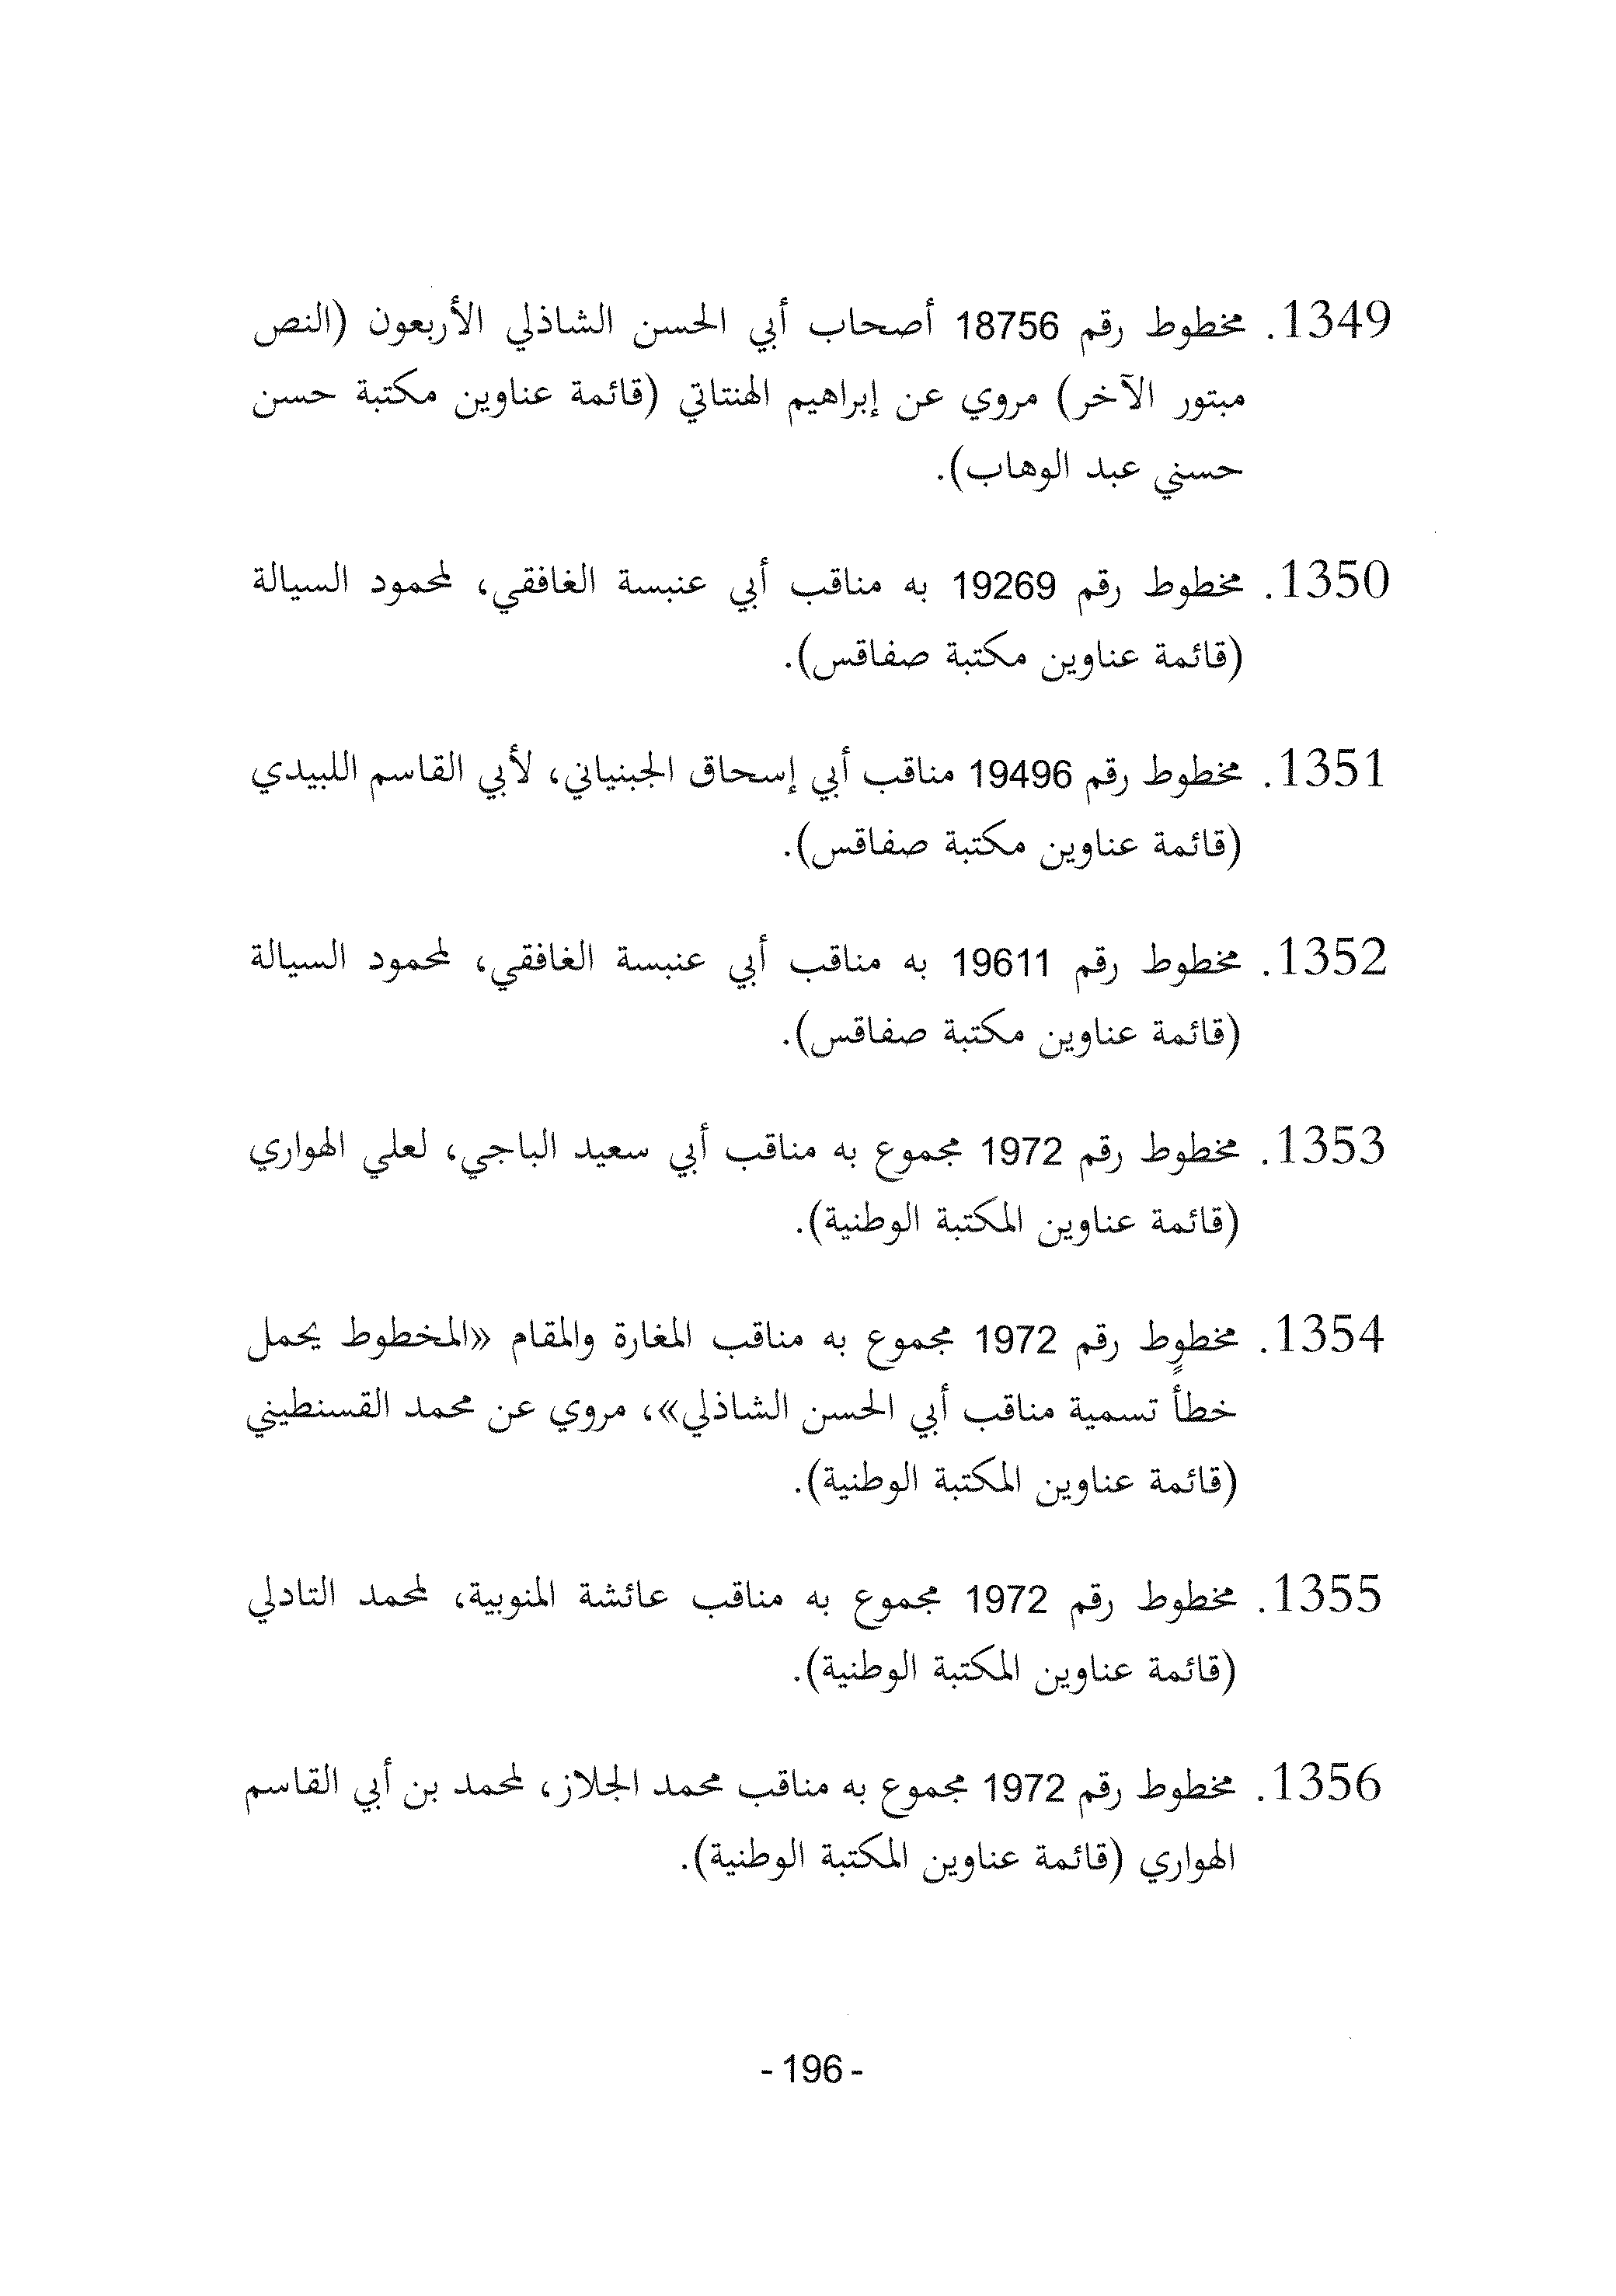 1349. مخطوط رقم 18756 أصحاب أبي الحسن الشاذلي الأربعون (النص
مبتور الآخر) مروي عن إبراهيم الهنتاتي (قائمة عناوين مكتبة حسن
حسني عبد الوهاب).
1350. مخطوط رقم 19269 به مناقب أبي عنبسة الغافقي، لمحمود السيالة
(قائمة عناوين مكتبة صفاقس).
1351. مخطوط رقم 19496 مناقب أبي إسحاق الجبنياني، لأبي القاسم اللبيدي
(قائمة عناوين مكتبة صفاقس).
1352. مخطوط رقم 19611 به مناقب أبي عنبسة الغافقي، لمحمود السيالة
(قائمة عناوين مكتبة صفاقس).
1353. مخطوط رقم 1972 مجموع به مناقب أبي سعيد الباجي، لعلي الهواري
(قائمة عناوين المكتبة الوطنية).
1354. مخطوطٍ رقم 1972 مجموع به مناقب المغارة والمقام «المخطوط يحمل
خطأ تسمية مناقب أبي الحسن الشاذلي»، مروي عن محمد القسنطيني
(قائمة عناوين المكتبة الوطنية).
1355. مخطوط رقم 1972 مجموع به مناقب عائشة المنوبية، لمحمد التادلي
(قائمة عناوين المكتبة الوطنية).
1356. مخطوط رقم 1972 مجموع به مناقب محمد الجلاز، لمحمد بن أبي القاسم
الهواري (قائمة عناوين المكتبة الوطنية).
- 196 -